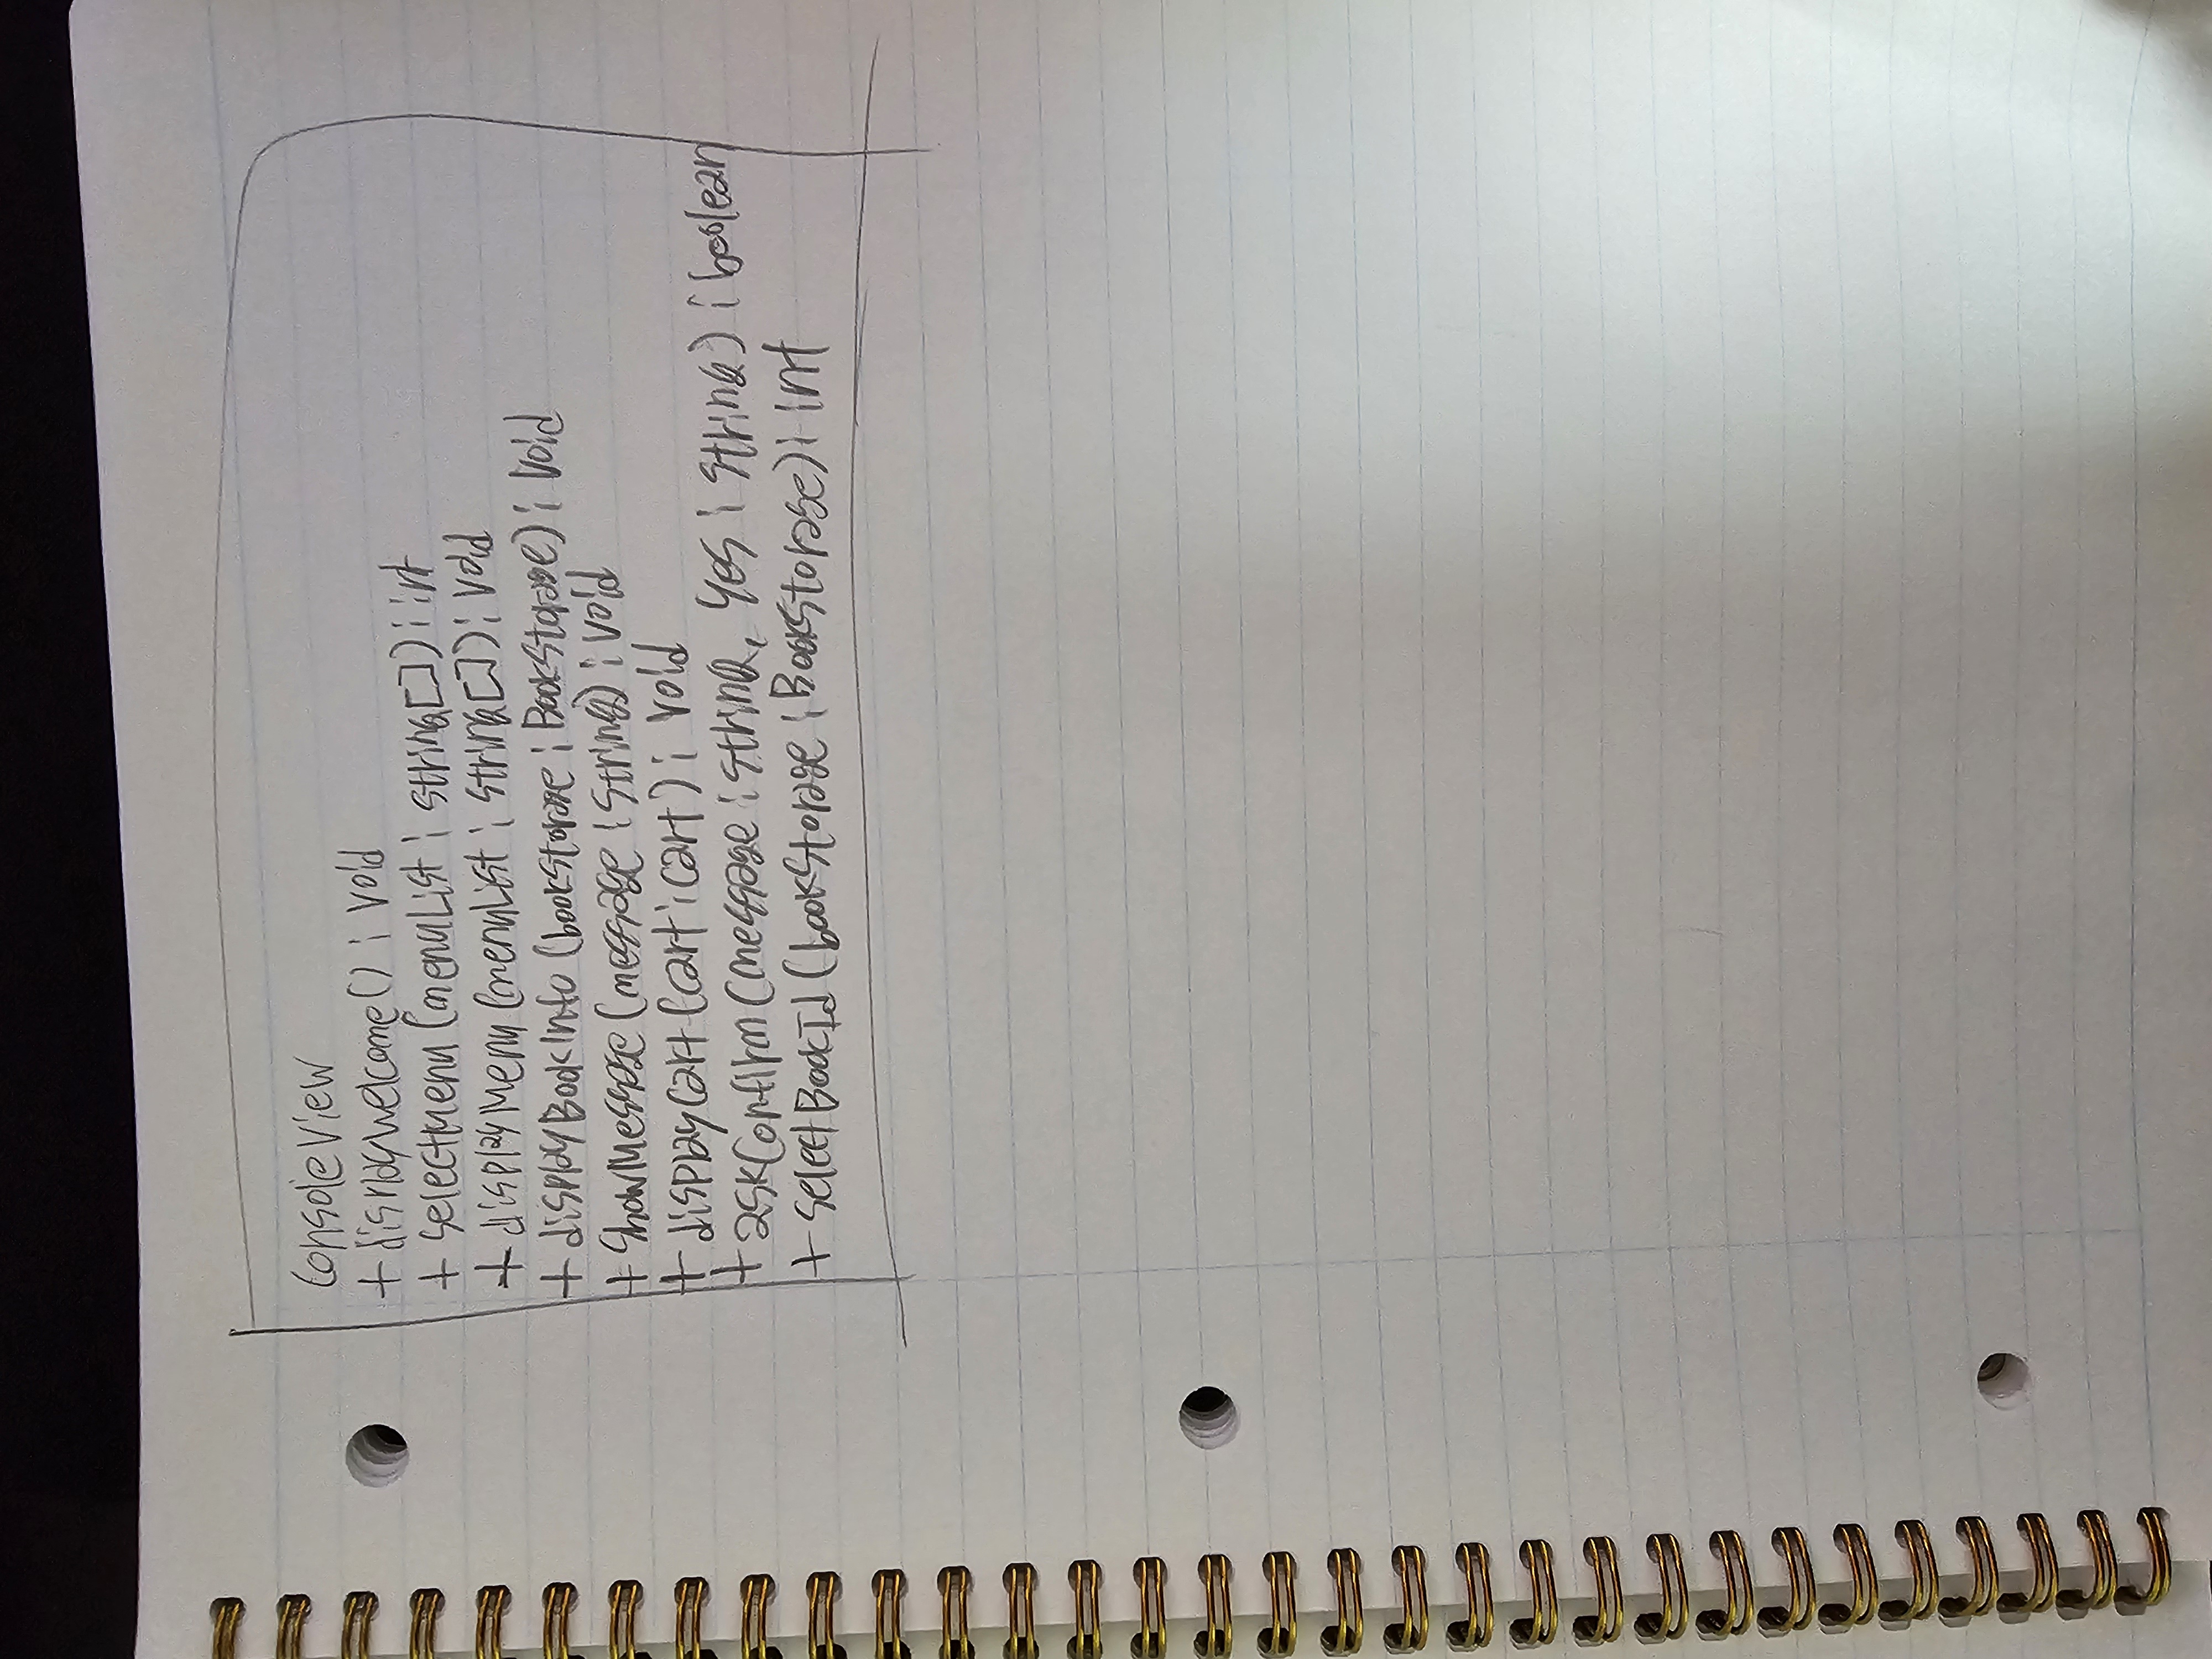 ConsoleView
+ displayWelcome() : void
+ selectMenu (menuList : string[]) : int
+ displayMenu (menuList : string[]) : void
+ displayBookInfo (bookStorage : BookStorage) : void
+ showMessage (message : string) : void
+ displayCart (cart : Cart) : void
+ askConfirm (message : string, yes : string) : boolean
+ selectBookId (bookStorage : BookStorage) : int